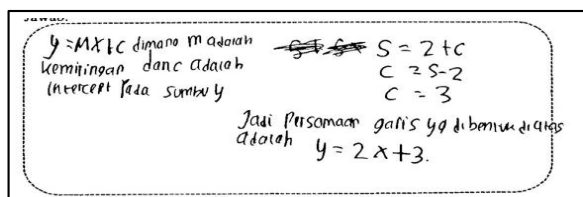 Jawab:
y = mx + c dimana m adalah
kemiringan dan c adalah
intercept Pada sumbu y
5 = 2 + c
c = 5 - 2
c = 3
Jadi Persamaan garis yg dibentuk diatas
adalah y = 2x + 3.